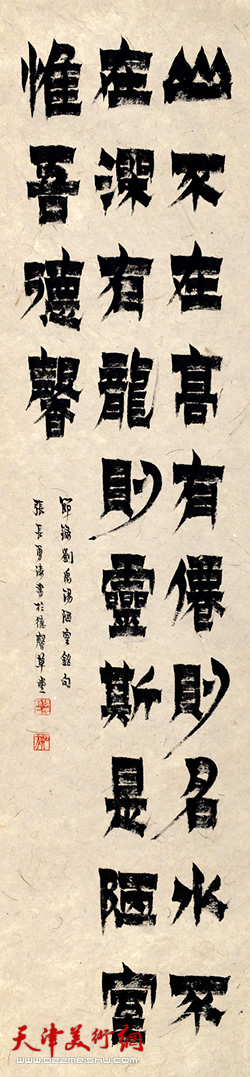 山不在高有僊則名水不
在深有龍則靈斯是陋室
惟吾德馨
節錄劉禹錫陋室銘句
張長勇漆書於德馨草堂
天津美術網
www.022meishu.com